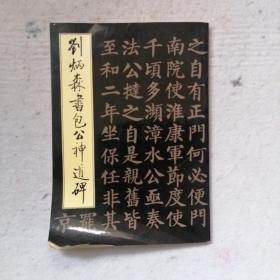 劉炳森書包公神道碑
之自有正門何必便門
南院使淮康軍節度使
千頃多瀕漳水公亟奏
法公撻之自是親舊皆
至和二年坐保任非其
京